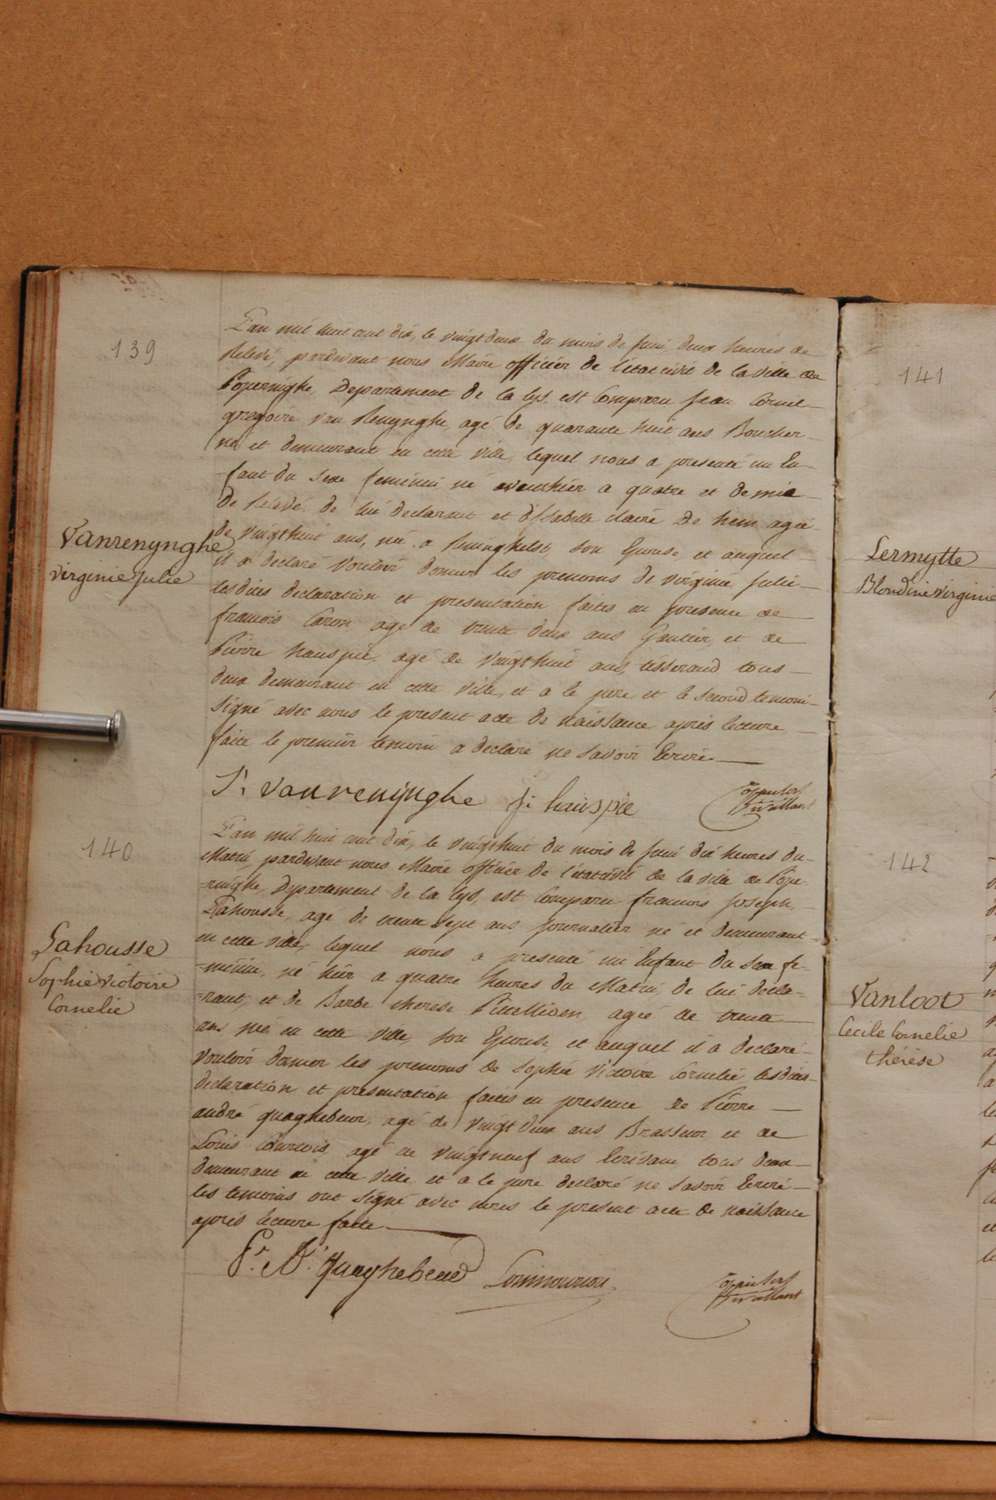 139
Vanrenynghe
Virginie Julie
L'an mil huit cent dix, le vingt deux du mois de juin deux heures de
Relevé, pardevant nous Maire officier de l'état civil de la ville de
Poperinghe, Departement de la Lys, est Comparu Jean Cornil
gregoire Van Renynghe, agé de quarante huit ans Boucher
né et demeurant en cette ville, lequel nous a presenté un En-
fant du Sexe feminin né avant hier a quatre et demie
de Relevé, de lui declarant et d'Isabelle Claire de heem agée
de vingt huit ans, née a Reninghelst, son Epouse et auquel
il a declaré vouloir donner les prenoms de Virginie Julie
lesdites declaration et presentation faites en presence de
francois Caron agé de trente deux ans Gantier, et de
Pierre hauspie, agé de vingt huit ans, tisserand tous
deux demeurant en cette ville, et a le pere et le second temoin
signé avec nous le present acte de naissance après lecture
faite le premier temoin a declaré ne savoir Ecrire
J: vanrenynghe P: hauspie
140
Lahousse
Sophie victoire
Cornelie
L'an mil huit cent dix, le vingt huit du mois de juin dix heures du
Matin, pardevant nous Maire officier de l'état civil de la ville de Pope-
ringhe, Departement de la Lys, est Comparu francois Joseph
Lahousse, agé de trente sept ans journalier né et demeurant
en cette ville, lequel nous a presenté un Enfant du Sexe fe-
minin, né hier a quatre heures du Matin de lui decla-
rant et de Barbe therese agée de trente
ans née en cette ville, son Epouse et auquel il a declaré
vouloir donner les prenoms de Sophie Victoire Cornelie lesdites
declaration et presentation faites en presence de Pierre
andré quaghebeur, agé de vingt deux ans Brasseur et de
Louis agé de vingt neuf ans Ecrivain tous deux
demeurant en cette ville et a le pere declaré ne savoir Ecrire
les temoins ont signé avec nous le present acte de naissance
après lecture faite
141
Lermytte
Blondine virginie
142
Vanloot
Cecile Cornelie
therèse